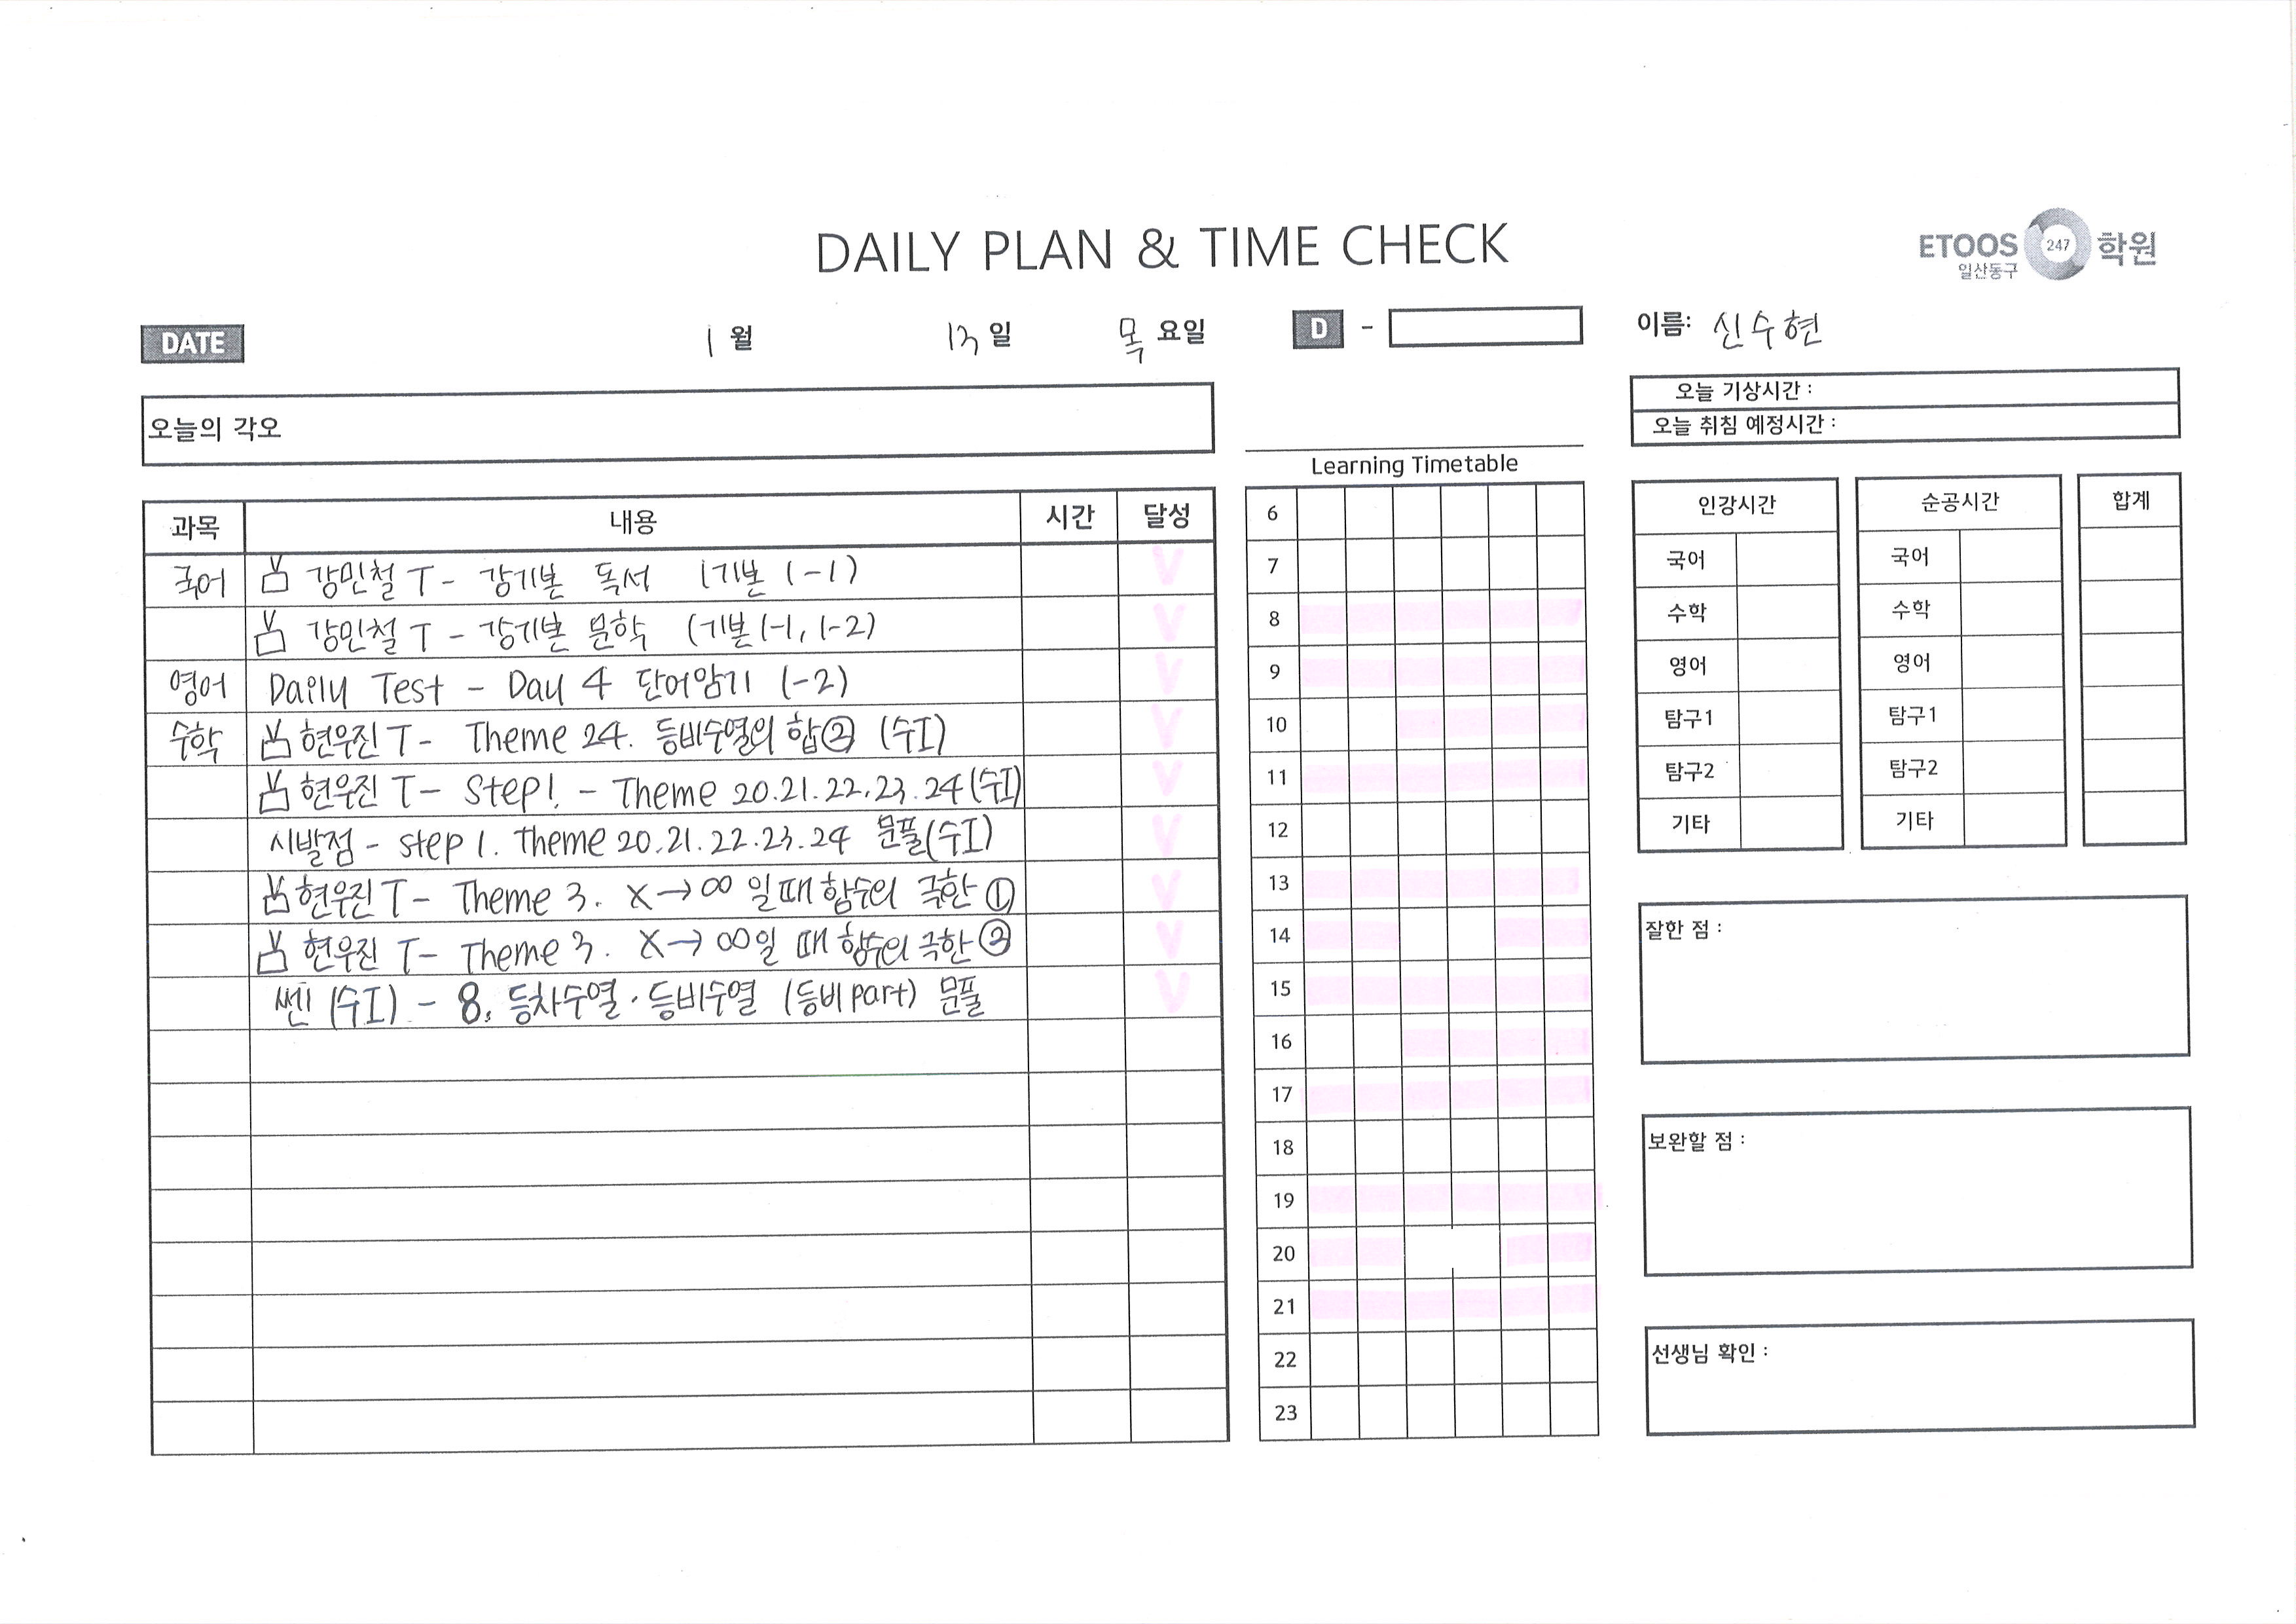 DAILY PLAN & TIME CHECK
ETOOS 247 학원
일산동구
DATE 1 월 13 일 목 요일 D -
이름: 신수현
오늘의 각오
오늘 기상시간 :
오늘 취침 예정시간 :
과목 내용 시간 달성
국어 강민철 T - 강기본 독서 (기본 1-1) V
강민철 T - 강기본 문학 (기본 1-1, 1-2) V
영어 Daily Test - Day 4 단어암기 (-2) V
수학 현우진 T - Theme 24. 등비수열의 합② (수I) V
현우진 T - Step1. - Theme 20.21.22.23.24 (수I) V
시발점 - step 1. Theme 20.21.22.23.24 문풀(수I) V
현우진 T - Theme 3. x→∞ 일 때 함수의 극한 ① V
현우진 T - Theme 3. x→∞일 때 함수의 극한 ② V
쎈 (수I) - 8. 등차수열·등비수열 (등비 part) 문풀 V
Learning Timetable
6
7
8
9
10
11
12
13
14
15
16
17
18
19
20
21
22
23
인강시간 순공시간 합계
국어 국어
수학 수학
영어 영어
탐구1 탐구1
탐구2 탐구2
기타 기타
잘한 점 :
보완할 점 :
선생님 확인 :